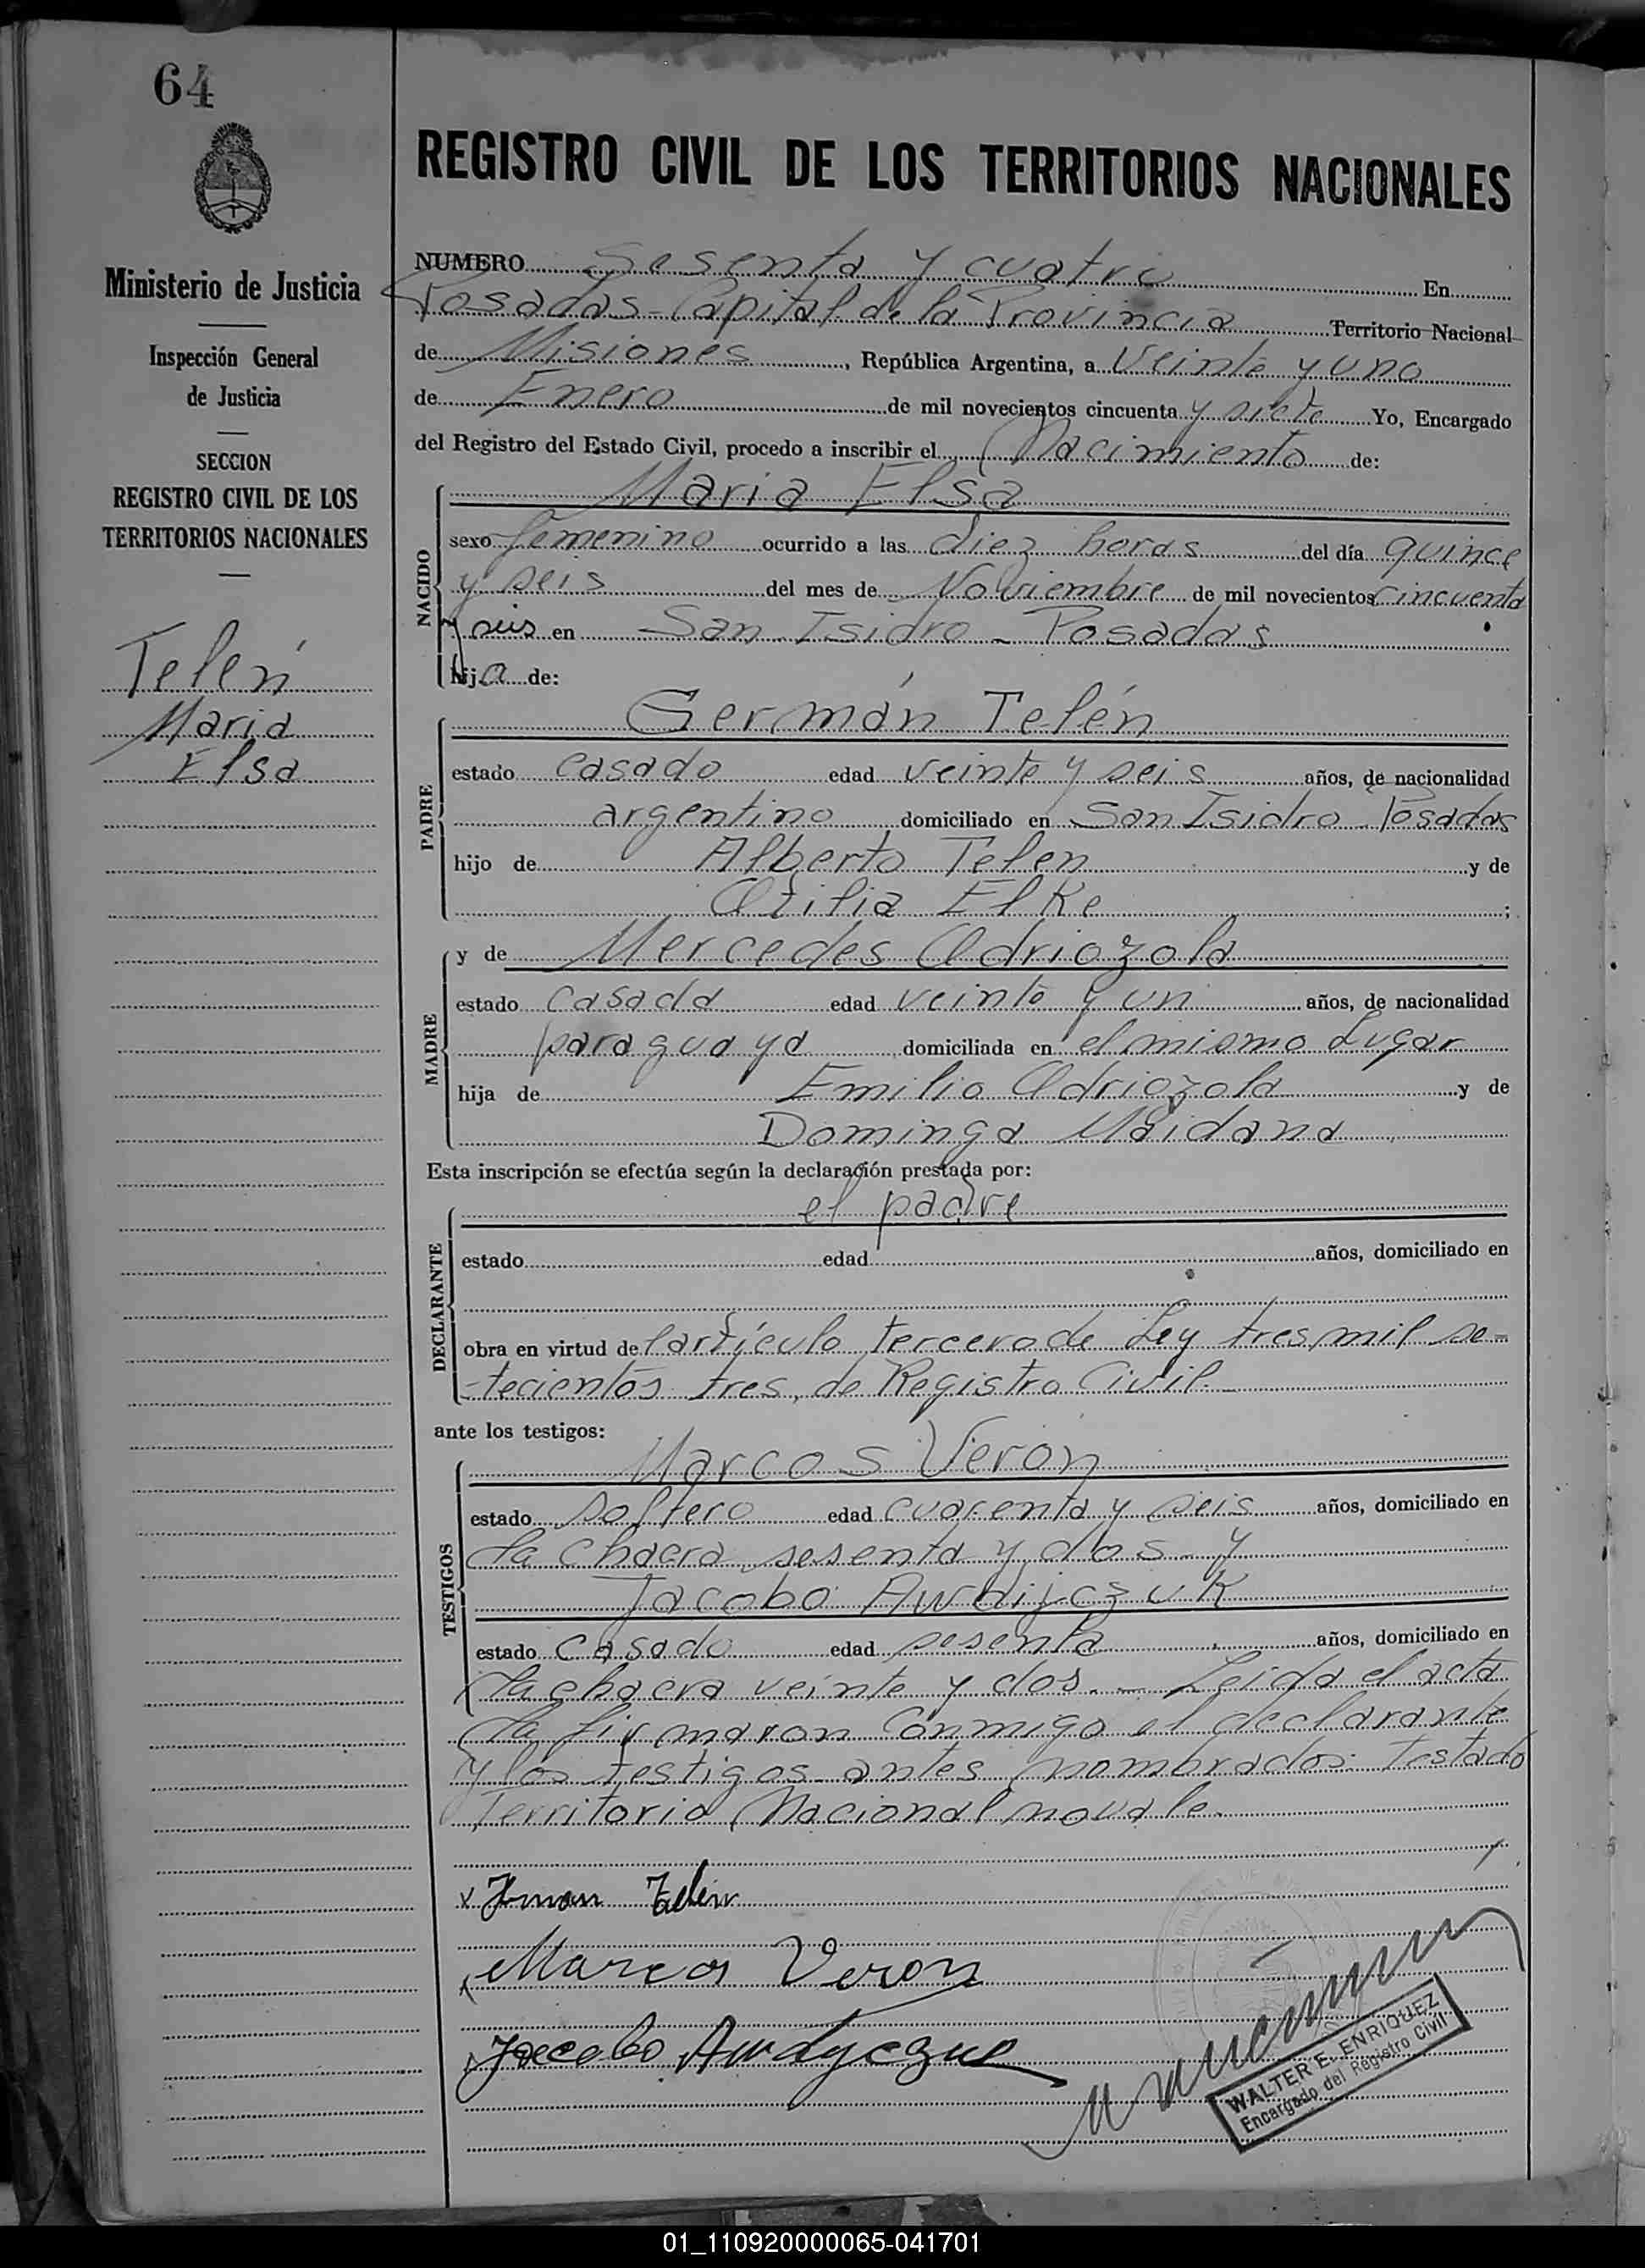 64
Ministerio de Justicia
Inspección General
de Justicia
SECCION
REGISTRO CIVIL DE LOS
TERRITORIOS NACIONALES
Telén
Maria
Elsa
REGISTRO CIVIL DE LOS TERRITORIOS NACIONALES
NUMERO Sesenta y cuatro En
Posadas-Capital de la Provincia Territorio Nacional
de Misiones, República Argentina, a Veinte y uno
de Enero de mil novecientos cincuenta y siete Yo, Encargado
del Registro del Estado Civil, procedo a inscribir el Nacimiento de:
NACIDO
Maria Elsa
sexo femenino ocurrido a las diez horas del día quince
y seis del mes de Noviembre de mil novecientos cincuenta
y seis en San Isidro - Posadas
hija de:
PADRE
Germán Telén
estado casado edad veinte y seis años, de nacionalidad
argentino domiciliado en San Isidro Posadas
hijo de Alberto Telen y de
Otilia Elke;
MADRE
y de Mercedes Odriozola
estado casada edad veinte y un años, de nacionalidad
paraguaya domiciliada en el mismo Lugar
hija de Emilio Odriozola y de
Dominga Maidana
Esta inscripción se efectúa según la declaración prestada por:
DECLARANTE
el padre
estado edad años, domiciliado en
obra en virtud del artículo tercero de Ley tres mil se-
-tecientos tres, de Registro Civil.
ante los testigos:
TESTIGOS
Marcos Veron
estado soltero edad cuarenta y seis años, domiciliado en
la chacra sesenta y dos - y
Jacobo Awdijczuk
estado casado edad sesenta años, domiciliado en
la chacra veinte y dos. - Leida el acta
la firmaron conmigo el declarante
y los testigos antes nombrados. Testado
Territorio Nacional no vale.
x Telen
Marcos Veron
Jacobo Awdyczuk
WALTER E. ENRIQUEZ
Encargado del Registro Civil
01_110920000065-041701